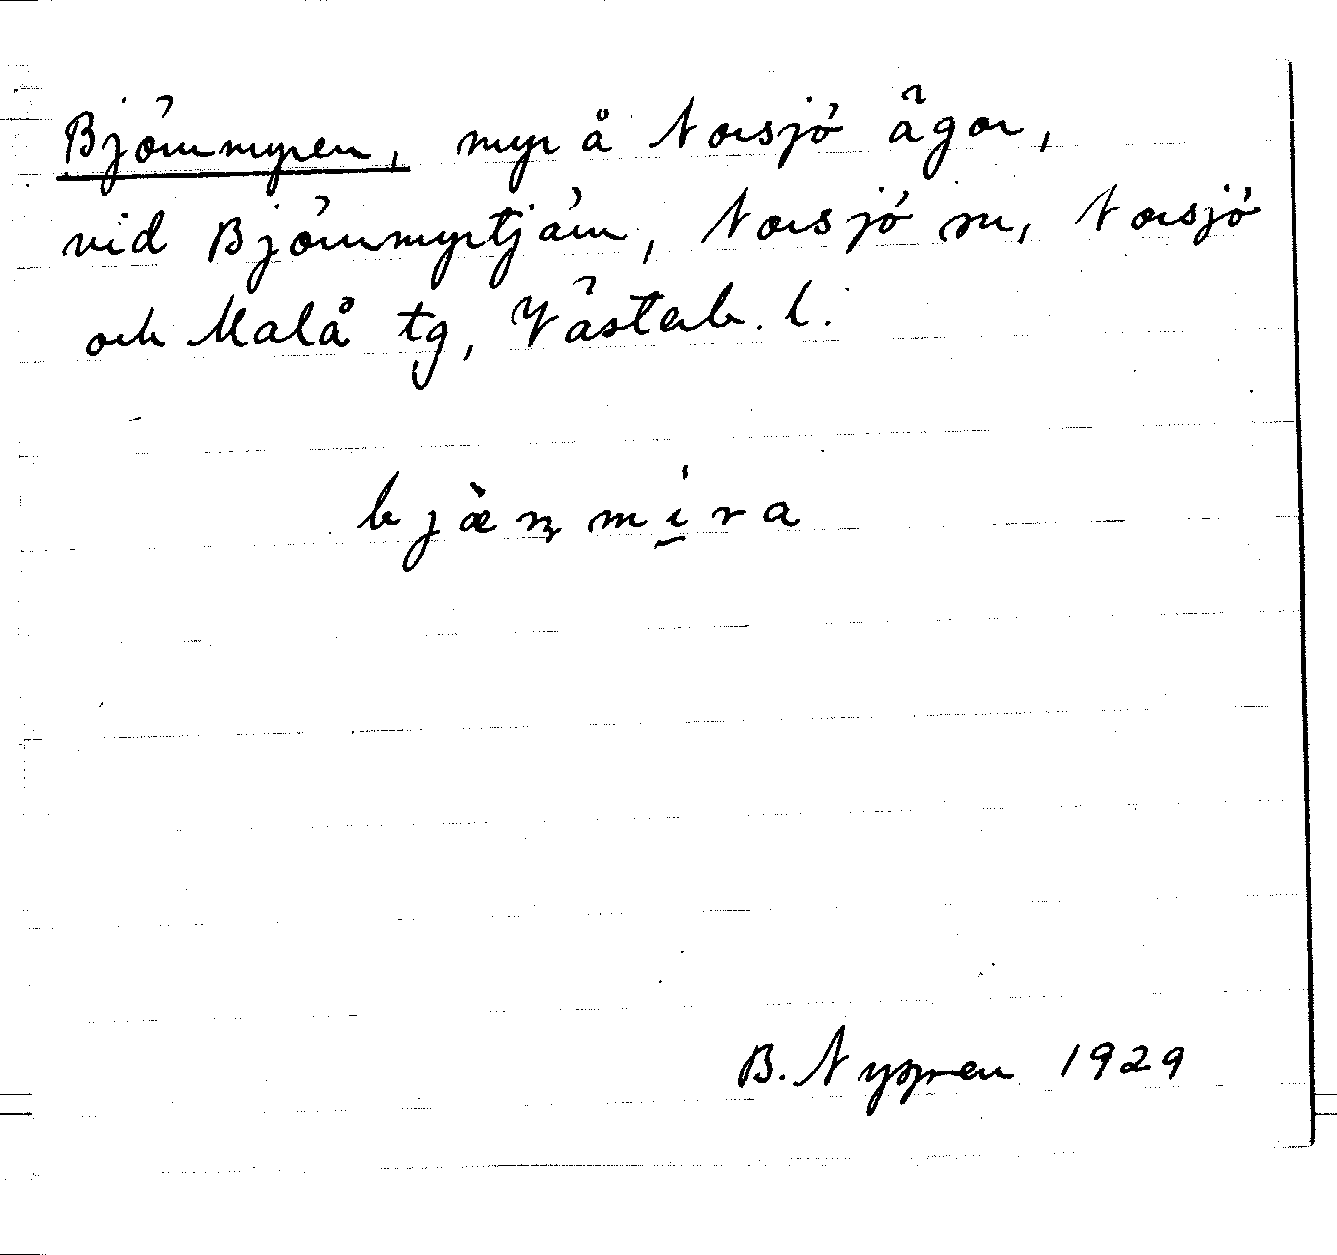 Björnmyren, myr å Norsjö ägor,
vid Björnmyrtjärn, Norsjö sn, Norsjö
och Malå tg, Västerb. l.
bjæ̀ṇmi̱ra
B. Nygren 1929